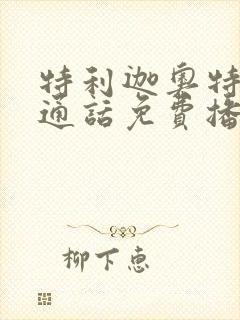 特利迦奥特
通話免費播
柳下惠